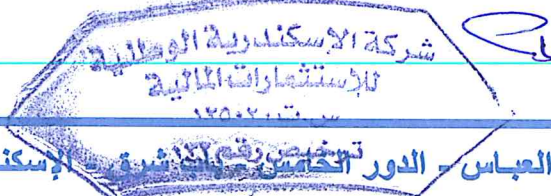 شركة الإسكندرية الوطنية
للإستثمارات المالية
س.ت: ١٢٥٠٢
ترخيص رقم
العباس - الدور الخامس - باب شرق - الإسكند